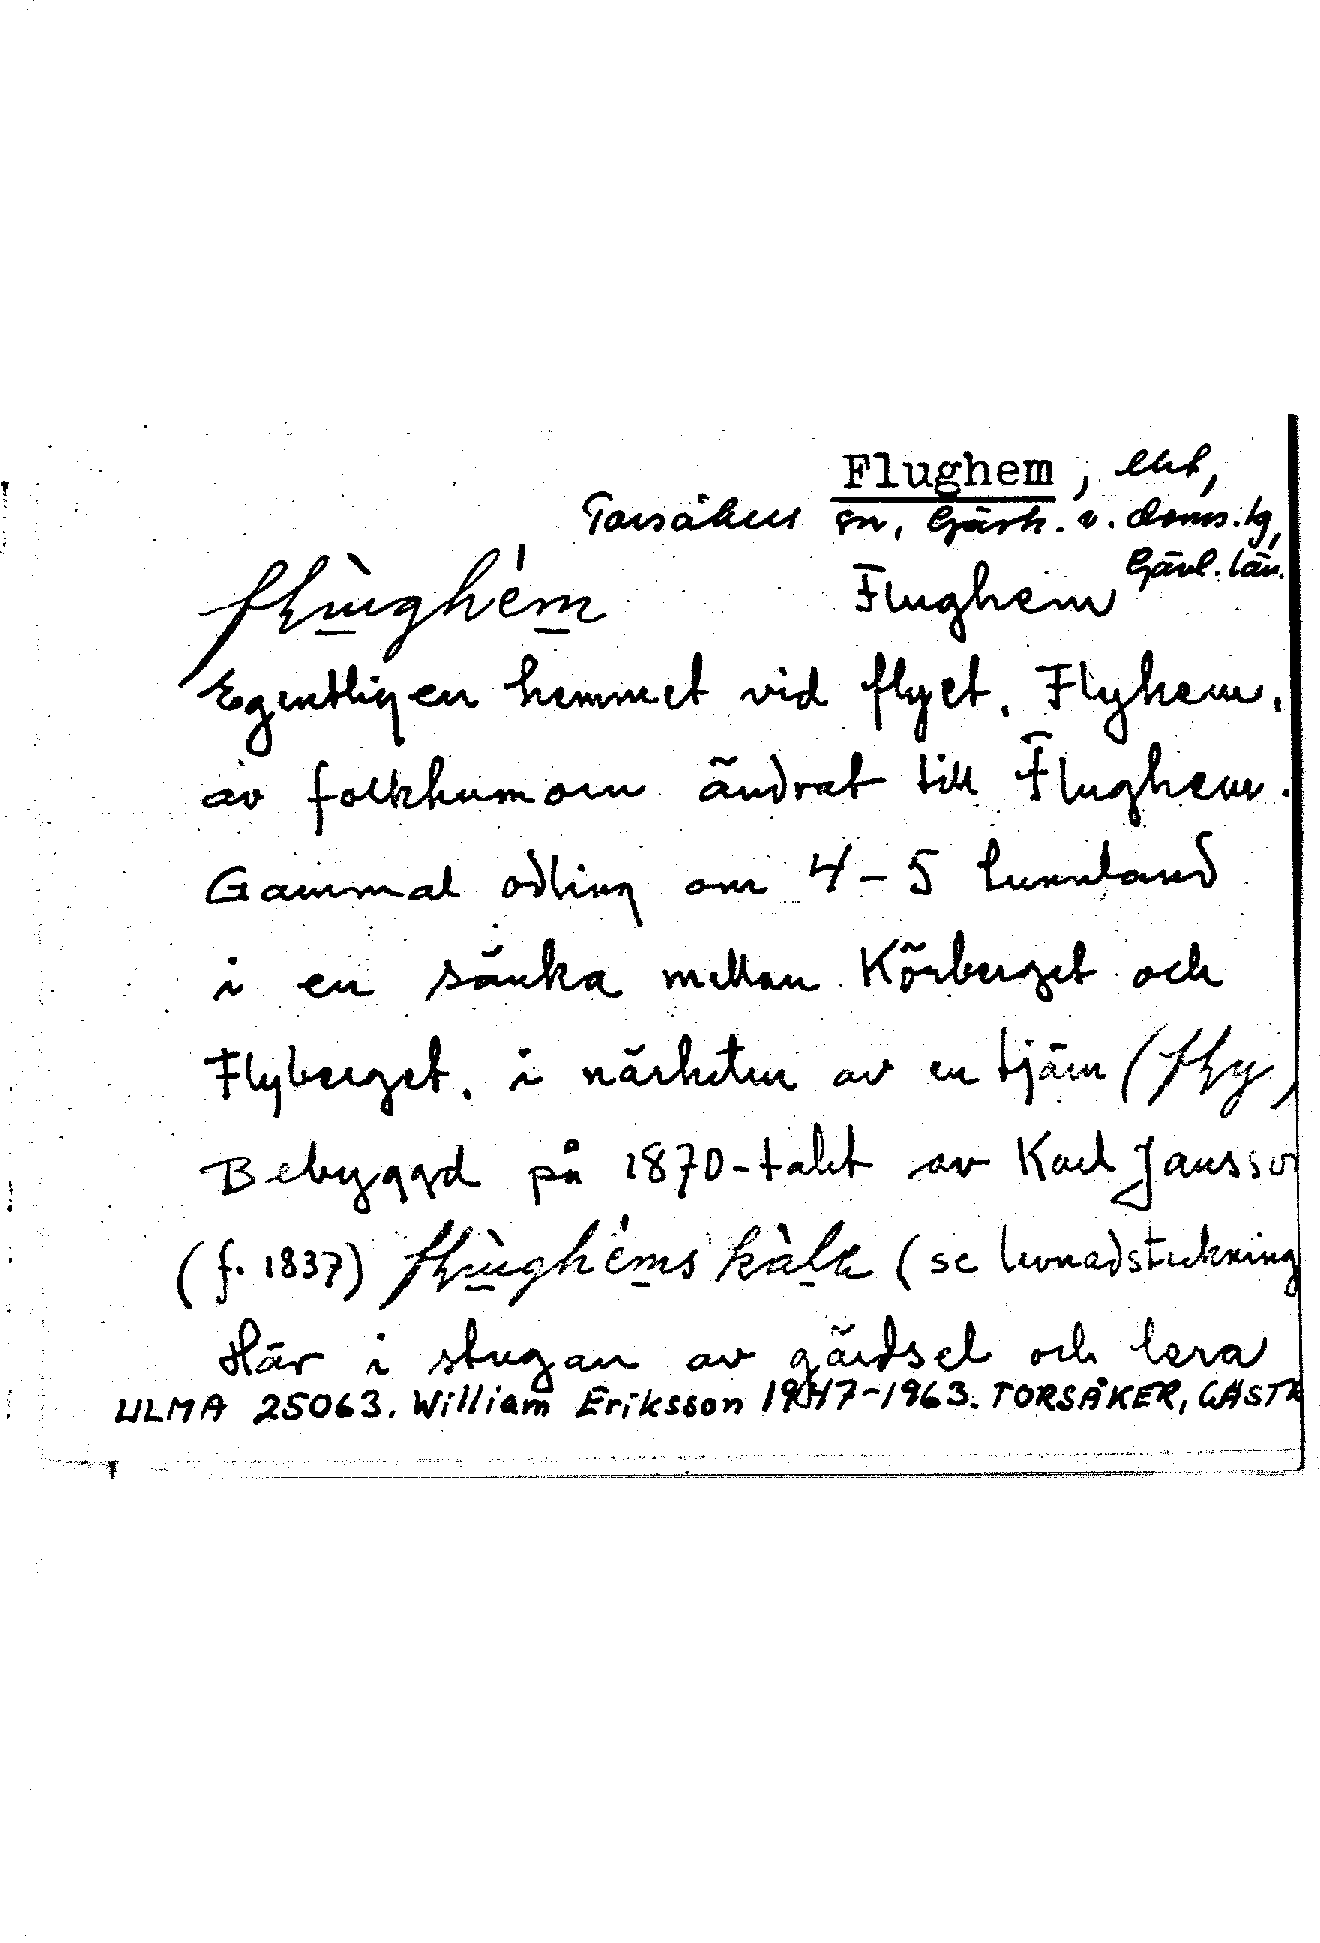 Flughem, lht,
Torsåkers sn, Gästr. v. doms.lg,
Gävl. län.
flùghém Flughem
Egentligen hemmet vid flyet. Flyhem.
av folkhumorn ändrat till Flughem.
Gammal odling om 4-5 tunnland
i en sänka mellan Körberget och
Flyberget. i närheten av en tjärn (fly)
Bebyggd på 1870-talet av Karl Jansso
(f. 1837) flùghéms kàlə (se levnadsteckning
Här i stugan av gärdsel och lera
ULMA 25063. William Eriksson 1947-1963. TORSÅKER, GÄSTR